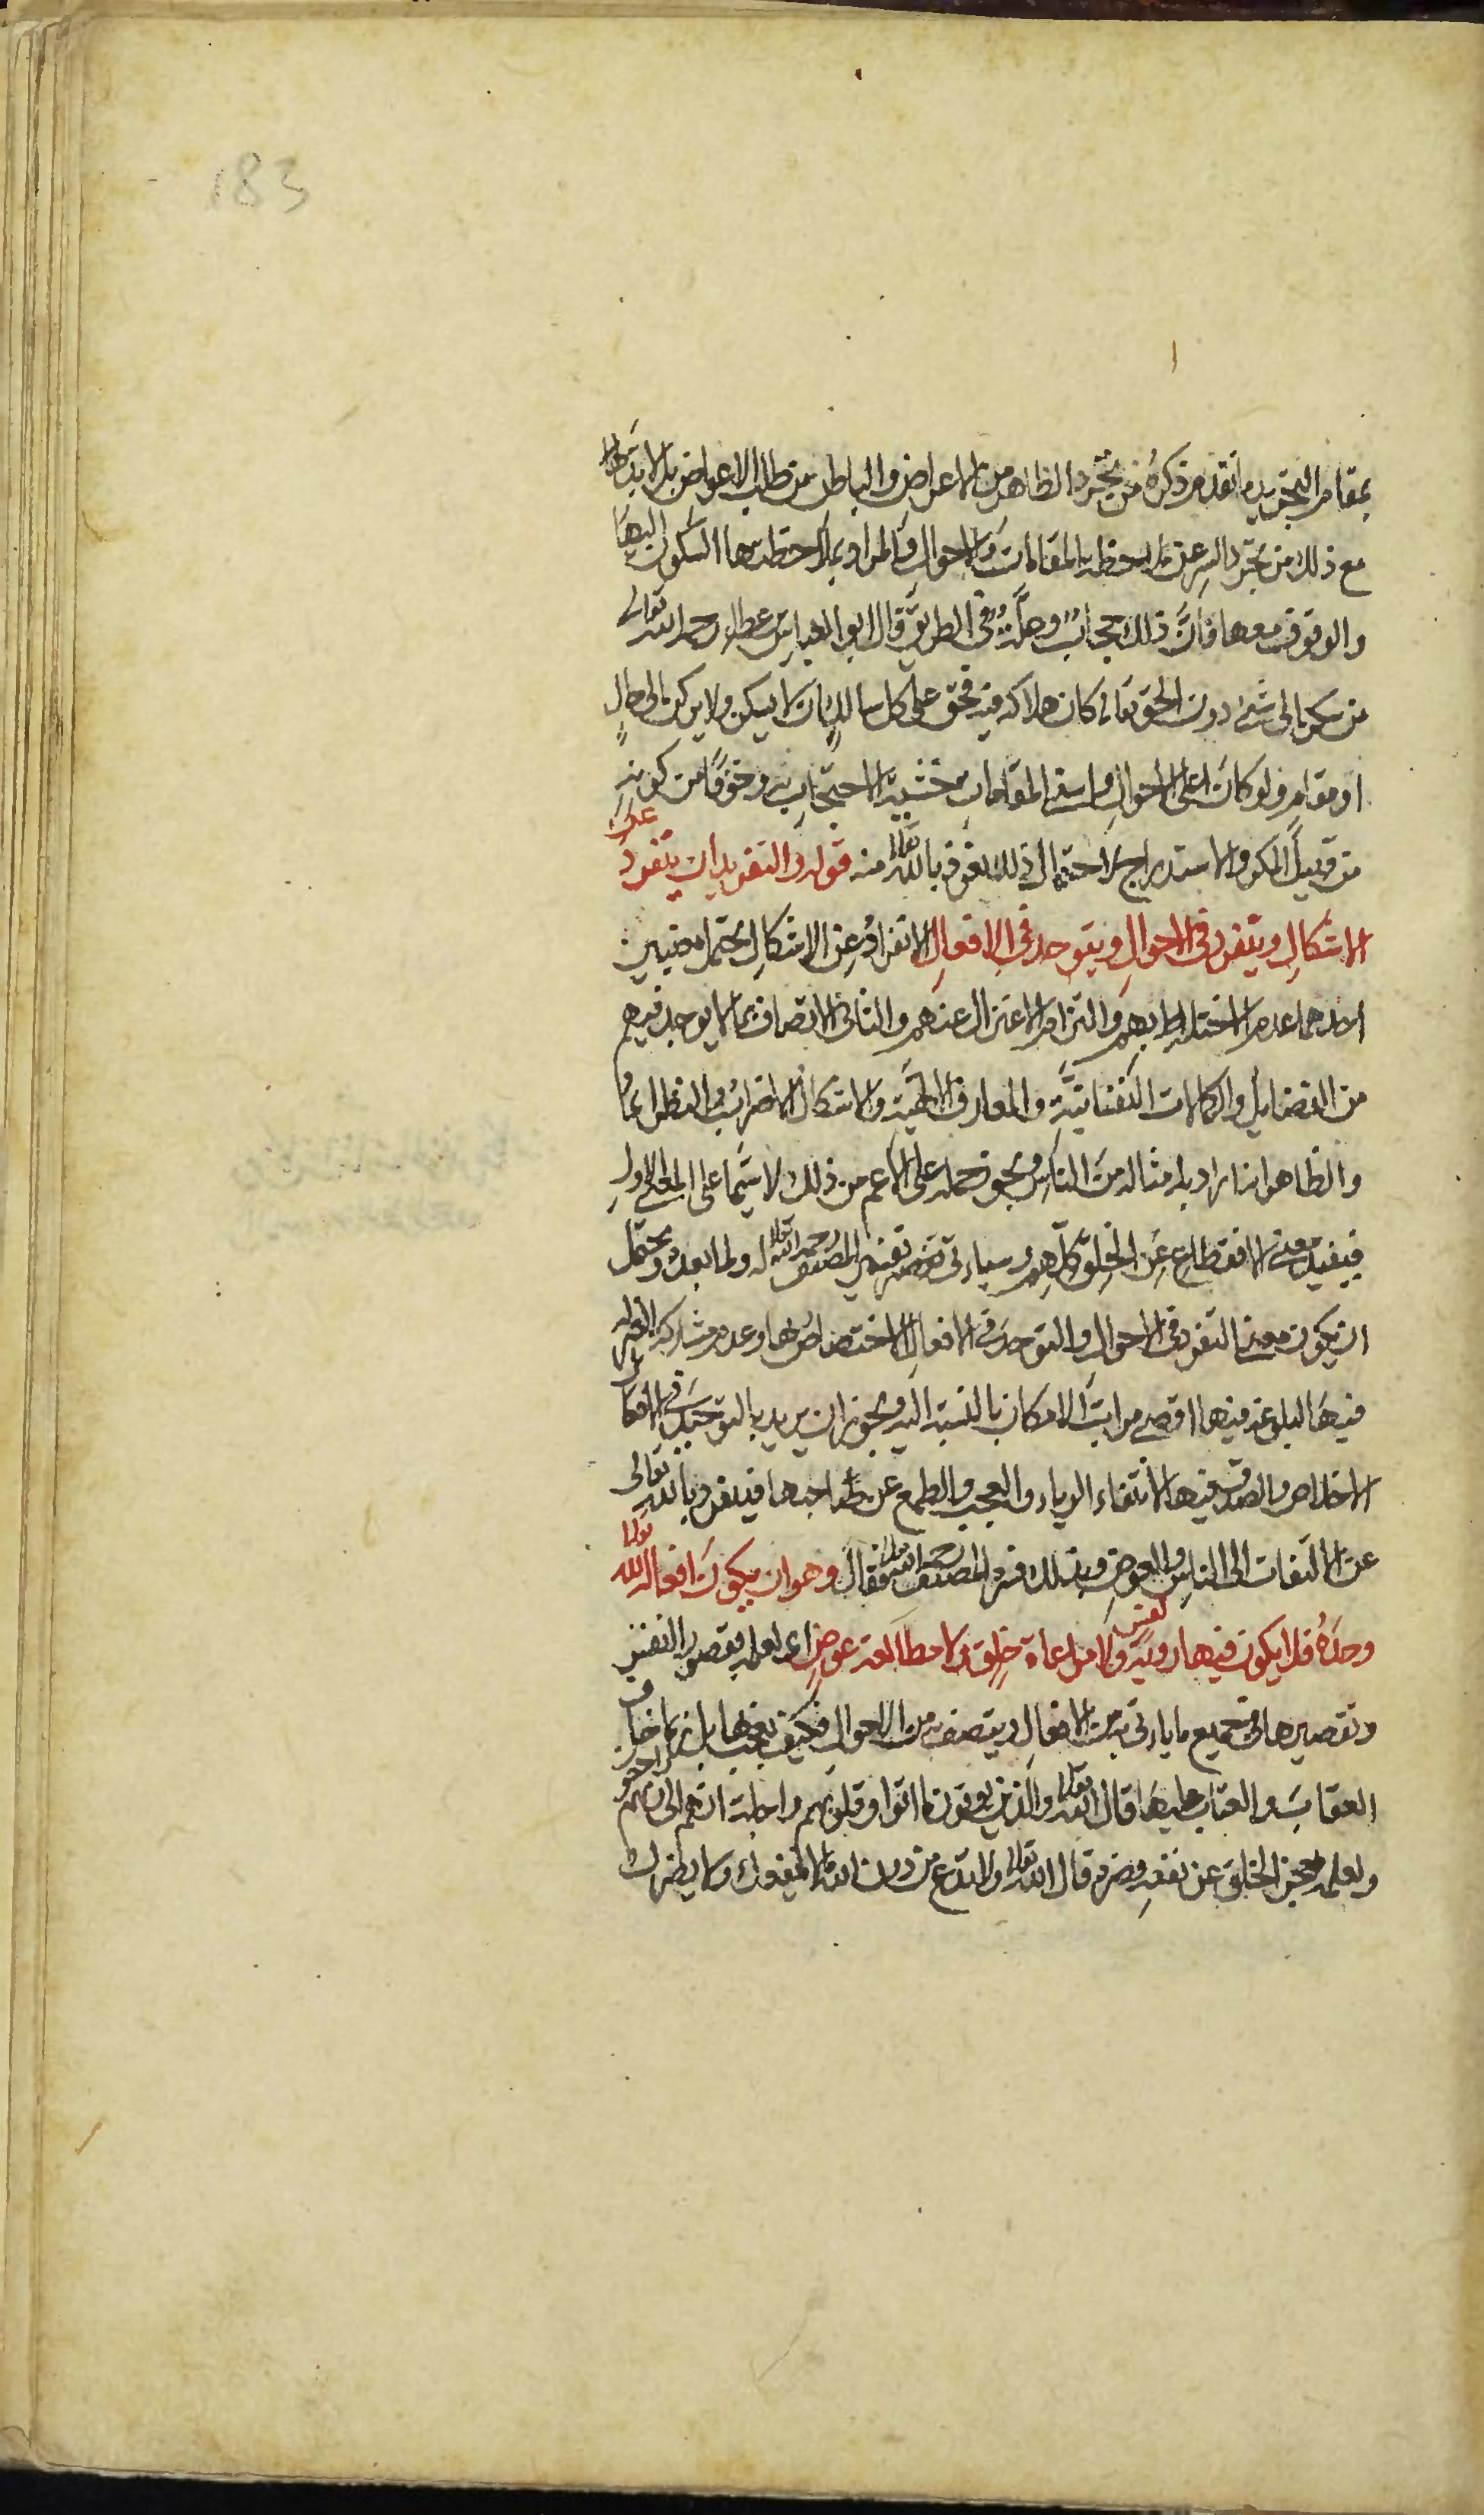 183
بمقام التجريد ما تقدم ذكره من تجرد الظاهر من الاعراض والباطن من طلب الاعواض بل لا بد
مع ذلك من تجرد السر عن ملاحظة المقامات والاحوال والمراد بملاحظتها السكون اليها
والوقوف معها فان ذلك حجاب وعلة في الطريق قال ابو العباس بن عطاء رحمه الله تعالى
من سكن الى شئ دون الحق تعالى كان هلاكه فيه فحق على كل سالك ان لا يسكن ولا يركن الى حال
او مقام ولو كان اعلى الاحوال واسنى المقامات خشية الاحتجاب به وخوفا من كونه
من قبيل المكر والاستدراج لاحتمال ذلك نعوذ بالله تعالى منه قوله والتفريد ان يتفرد عن
الاشكال ويتفرد في الاحوال ويتوحد في الافعال الانفراد عن الاشكال يحتمل معنيين
احدهما عدم الاختلاط بهم والتزام الاعتزال عنهم والثاني الاتصاف بما لا يوجد فيهم
من الفضايل والكمالات النفسانية والمعارف الالهية والاشكال الاضراب والنظراء
والظاهر انه اراد به امثاله من الناس ويجوز حمله على الاعم من ذلك لا سيما على المعنى الاول
فيفيد معنى الانقطاع عن الخلق كلهم وسياتي تفسير المصنف رحمه الله تعالى له ولما بعده ويحتمل
ان يكون معنى التفرد في الاحوال والتوحد في الافعال اختصاصه بها وعدم مشاركة الغير له
فيها لبلوغه فيها اقصى مراتب الامكان بالنسبة اليه ويجوز ان يريد بالتوحيد في الافعال
الاخلاص والصدق فيها لانتفاء الرياء والعجب والطمع عن صاحبها فينفرد بالله تعالى
عن الالتفات الى الناس والعوض وبذلك فسره المصنف رحمه الله تعالى فقال وهو ان يكون افعاله لله تعالى
وحده فلا يكون فيها روية نفس ولا مراعاة خلق ولا مطالعة عوض اي لعلمه بقصور النفس
وتقصيرها في جميع ما ياتي به من الافعال ويتصف به من الاحوال فكيف يعجب بها بل ربما خاف
العقاب والعتاب عليها قال الله تعالى والذين يوتون ما اتوا وقلوبهم وجلة انهم الى ربهم راجعون
ولعلمه بعجز الخلق عن نفعه وضره قال الله تعالى ولا تدع من دون الله ما لا ينفعك ولا يضرك